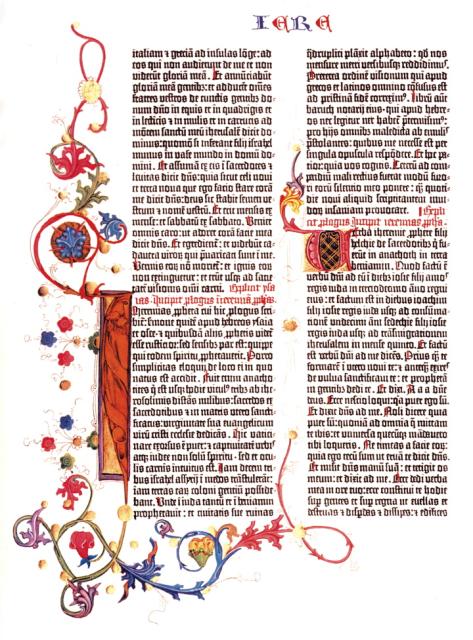 IERE
italiam ⁊ greciā ad insulas lōge: ad
eos qui non audierunt de me et non
viderūt gloriā meā. Et annūciabūt
gloriā meā gentib⁊: et adducēt om̄es
fratres vestros de cunctis gentib⁊ do-
num dn̄o in equis et in quadrigis et
in lecticis ⁊ in mulis et in carrucis ad
montem sanctū meū iherusalē dicit do-
minus: quomō si inferant filij israhel
munus in vase mundo in domū do-
mini. Et assumā ex eis ī sacerdotes ⁊
levitas dicit dn̄s: quia sicut celi novi
et terra nova que ego facio stare corā
me dicit dn̄s: sic stabit semen ve-
strum ⁊ nomē vestrū. Et erit mensis ex
mense: et sabbatū ex sabbato. Veniet
omnis caro: ut adoret corā facie mea
dicit dn̄s. Et egredient̄: et videbūt ca-
davera viroꝝ qui p̄varicati sunt ī me.
Vermis eoꝝ nō moriet̄: et ignis eoꝝ
non extinguet̄: et erūt usqꝫ ad satie-
tatē visionis omī carni. Explicit ysa-
ias. Incipit plogus ī iheremiā ꝓphetā.
Iheremias ꝓpheta cui hic ꝓlogus scri-
bit̄: sermone quidē apud hebreos
Porro
simplicitas eloquij de loco ei in quo
natus est accidit. Fuit enim anatho-
rosolimis distās milibus: sacerdos ex
sacerdotibus ⁊ in matris utero sancti-
ficatus: virginitate sua euangelicum
virū cristi ecclesie dedicās. Hic vatici-
nare exorsus ē puer: ⁊ captivitatē urbis
atqꝫ iudee non solū spiritu: sed et ocu-
lis carnis intuitus est. Iam decem tri-
bus israhel assyrij ī medos trāstulerāt:
iam terras eaꝝ coloni gentiū posside-
bant. Unde ī iuda tantū et ī beniamin
prophetavit: et civitatis sue ruinas
q̄druplici plāxit alphabeto: qd̄ nos
mensure metri versibusqꝫ reddidimus.
Preterea ordinē visionum qui apud
grecos et latinos omnino cōfusus est
ad pristinā fidē correximꝰ. Librū aūt
baruch notarij eius qui apud hebre-
os nec legitur nec habet̄ p̄termisimꝰ:
pro hijs omnib⁊ maledicta ab emulis
p̄stolantes: quibus me necesse est per
singula opuscula respōdere. Et hec pa-
tior: quia vos cogitis. Ceterū ad com-
pendiū mali rectius fuerat modū furo-
ri eorū silentio meo ponere: qm̄ quoti-
die novi aliquid scriptitantem invi-
dorꝝ insaniam provocare. Explic̄
Verba iheremie ꝓphete filij
helchie de sacerdotib⁊ q̄ fu-
erūt in anathoth in terra
beniamin. Quod factū ē
verbū dn̄i ad eū ī dieb⁊ iosie filij amon
regis iuda in terciodecimo āno regni
eius: et factum est in diebus ioachim
filij iosie regis iuda usqꝫ ad consuma-
tionē undecimi āni sedechie filij iosie
regis iuda usqꝫ ad trāsmigrationem
iherusalem in mense quinto. Et factū
est verbū dn̄i ad me dicēs. Priusqꝫ te
formarē ī utero novi te: ⁊ anteqꝫ exires
de vulva sanctificavi te: et prophetā
in gentib⁊ dedi te. Et dixi. A a a dn̄e
deus. Ecce nescio loqui: qa puer ego sū.
Et dixit dn̄s ad me. Noli dicere quia
puer sū: quoniā ad omnia q̄ mittam
te ibis: et universa quecūqꝫ mādavero
tibi loqueris. Ne timeas a facie eoꝝ:
quia ego tecū sum ut eruā te dicit dn̄s.
Et misit dn̄s manū suā: et tetigit os
meum: et dixit dn̄s ad me. Ecce dedi verba
mea in ore tuo: ecce constitui te hodie
sup gentes et sup regna ut evellas et
destruas ⁊ disperdas ⁊ dissipes: ⁊ edifices